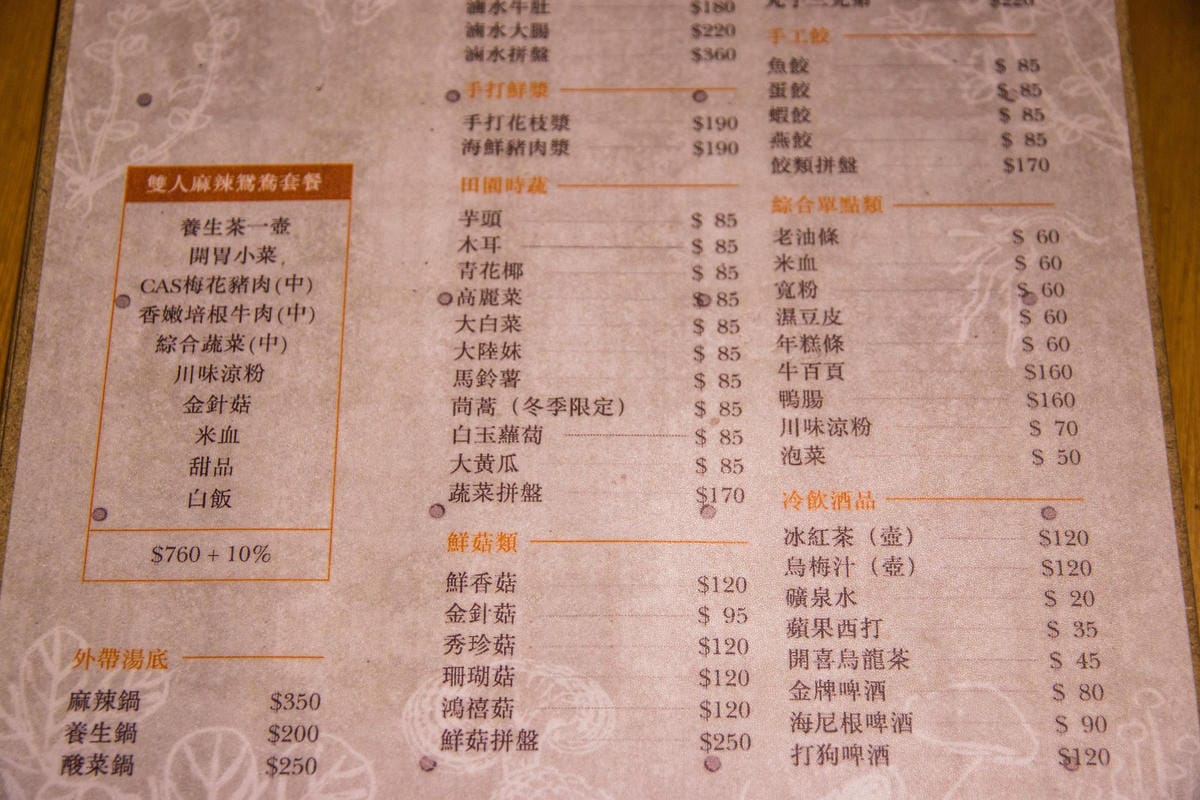 雙人麻辣鴛鴦套餐
養生茶一壺
開胃小菜
CAS梅花豬肉(中)
香嫩培根牛肉(中)
綜合蔬菜(中)
川味涼粉
金針菇
米血
甜品
白飯
$760 + 10%
外帶湯底
麻辣鍋 $350
養生鍋 $200
酸菜鍋 $250
滷水牛肚 $180
滷水大腸 $220
滷水拼盤 $360
手打鮮漿
手打花枝漿 $190
海鮮豬肉漿 $190
田園時蔬
芋頭 $ 85
木耳 $ 85
青花椰 $ 85
高麗菜 $ 85
大白菜 $ 85
大陸妹 $ 85
馬鈴薯 $ 85
茼蒿（冬季限定） $ 85
白玉蘿蔔 $ 85
大黃瓜 $ 85
蔬菜拼盤 $170
鮮菇類
鮮香菇 $120
金針菇 $ 95
秀珍菇 $120
珊瑚菇 $120
鴻禧菇 $120
鮮菇拼盤 $250
$220
手工餃
魚餃 $ 85
蛋餃 $ 85
蝦餃 $ 85
燕餃 $ 85
餃類拼盤 $170
綜合單點類
老油條 $ 60
米血 $ 60
寬粉 $ 60
濕豆皮 $ 60
年糕條 $ 60
牛百頁 $160
鴨腸 $160
川味涼粉 $ 70
泡菜 $ 50
冷飲酒品
冰紅茶（壺） $120
烏梅汁（壺） $120
礦泉水 $ 20
蘋果西打 $ 35
開喜烏龍茶 $ 45
金牌啤酒 $ 80
海尼根啤酒 $ 90
打狗啤酒 $120